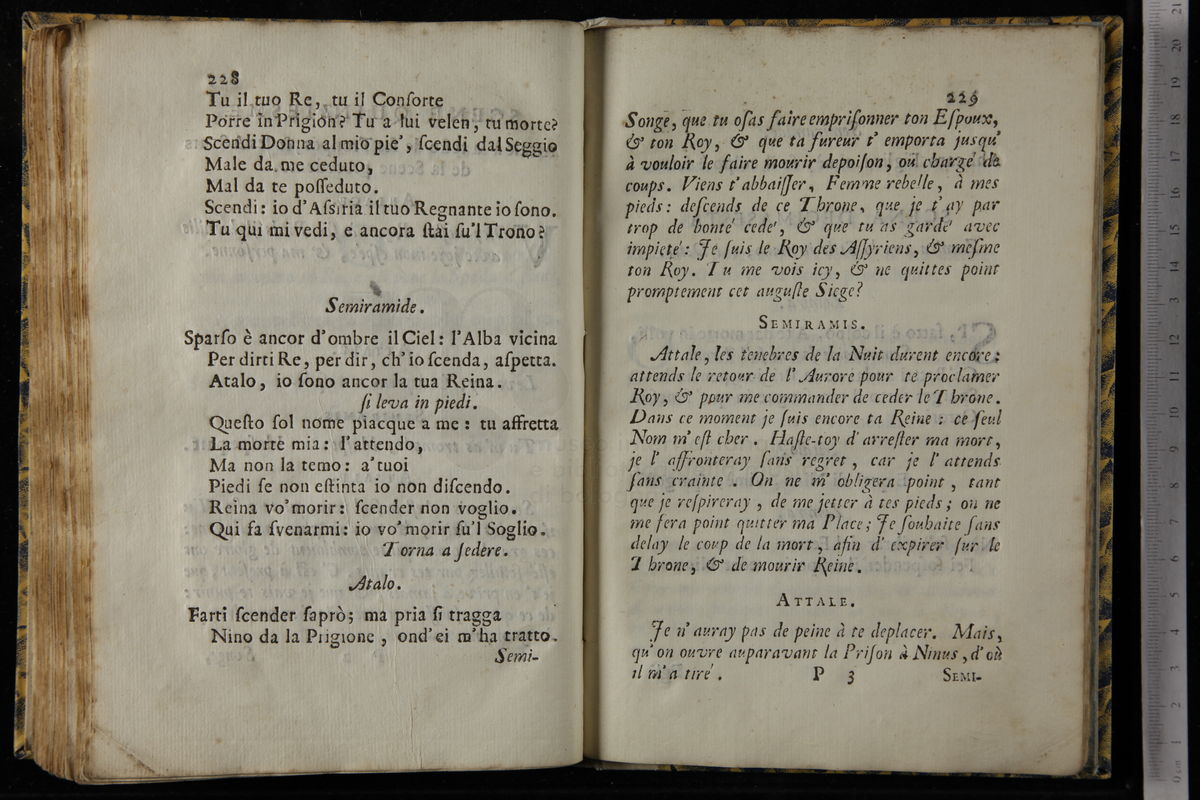 228
Tu il tuo Re, tu il Conſorte
Porre in Prigion? Tu a lui velen, tu morte?
Scendi Donna al mio pie', ſcendi dal Seggio
Male da me ceduto,
Mal da te poſſeduto.
Scendi: io d'Aſsiria il tuo Regnante io ſono.
Tu qui mi vedi, e ancora ſtai ſu'l Trono?
Semiramide.
Sparſo è ancor d'ombre il Ciel: l'Alba vicina
Per dirti Re, per dir, ch'io ſcenda, aſpetta.
Atalo, io ſono ancor la tua Reina.
ſi leva in piedi.
Queſto ſol nome piacque a me: tu affretta
La morte mia: l'attendo,
Ma non la temo: a'tuoi
Piedi ſe non eſtinta io non diſcendo.
Reina vo'morir: ſcender non voglio.
Qui fa ſvenarmi: io vo'morir ſu'l Soglio.
Torna a ſedere.
Atalo.
Farti ſcender ſaprò; ma pria ſi tragga
Nino da la Prigione, ond'ei m'ha tratto.
Semi-
229
Songe, que tu oſas faire empriſonner ton Eſpoux,
& ton Roy, & que ta fureur t'emporta jusqu'
à vouloir le faire mourir de poiſon, ou chargé de
coups. Viens t'abbaiſſer, Femme rebelle, à mes
pieds: deſcends de ce Throne, que je t'ay par
trop de bonté cedé, & que tu as gardé avec
impieté: Je ſuis le Roy des Aſſyriens, & meſme
ton Roy. Tu me vois icy, & ne quittes point
promptement cet auguſte Siege?
SEMIRAMIS.
Attale, les tenebres de la Nuit durent encore:
attends le retour de l'Aurore pour te proclamer
Roy, & pour me commander de ceder le Throne.
Dans ce moment je ſuis encore ta Reine: ce ſeul
Nom m'eſt cher. Haſte-toy d'arreſter ma mort,
je l'affronteray ſans regret, car je l'attends
ſans crainte. On ne m'obligera point, tant
que je reſpireray, de me jetter à tes pieds; on ne
me fera point quitter ma Place; Je ſouhaite ſans
delay le coup de la mort, afin d'expirer ſur le
Throne, & de mourir Reine.
ATTALE.
Je n'auray pas de peine à te deplacer. Mais,
qu'on ouvre auparavant la Priſon à Ninus, d'où
il m'a tiré.
P 3 SEMI-